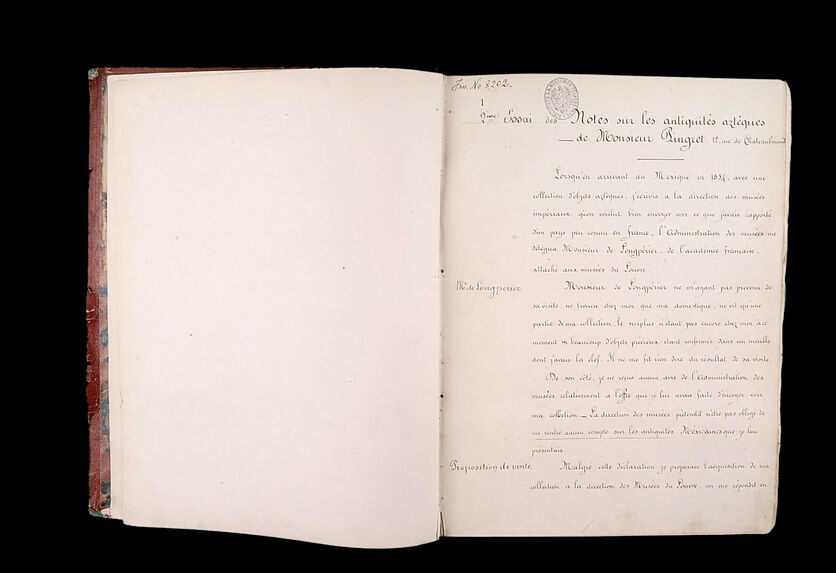 Inv. No 8202.
1
2ème Essai des Notes sur les antiquités aztèques
— de Monsieur Pingret. 12. rue de Chateaubriand
Lorsqu'en arrivant du Mexique en 1854, avec une
collection d'objets aztèques, j'écrivis a la direction des musées
impériaux, qu'on voulut bien envoyer voir ce que j'avais rapporté
d'un pays peu connu en france, l'Administration des musées me
délégua Monsieur de Longpérier, de l'académie française,
attaché aux musées du Louvre.
Mr de Longpérier.
Monsieur de Longpérier ne m'ayant pas prévenu de
sa visite, ne trouva chez moi que ma domestique, ne vit qu'une
partie de ma collection, le surplus n'étant pas encore chez moi à ce
moment & beaucoup d'objets précieux étant enfermés dans un meuble
dont j'avais la clef. Il ne me fit rien dire du resultat de sa visite.
De son côté, je ne reçus aucun avis de l'Administration des
musées, relativement a l'offre que je lui avais faite d'envoyer voir
ma collection. — La direction des musées prétendit n'être pas obligé de
me rendre aucun compte sur les antiquités Mexicaines que je lui
présentais.
Proposition de vente.
Malgré cette déclaration je proposai l'acquisition de ma
collection a la direction des Musées du Louvre, on me répondit en